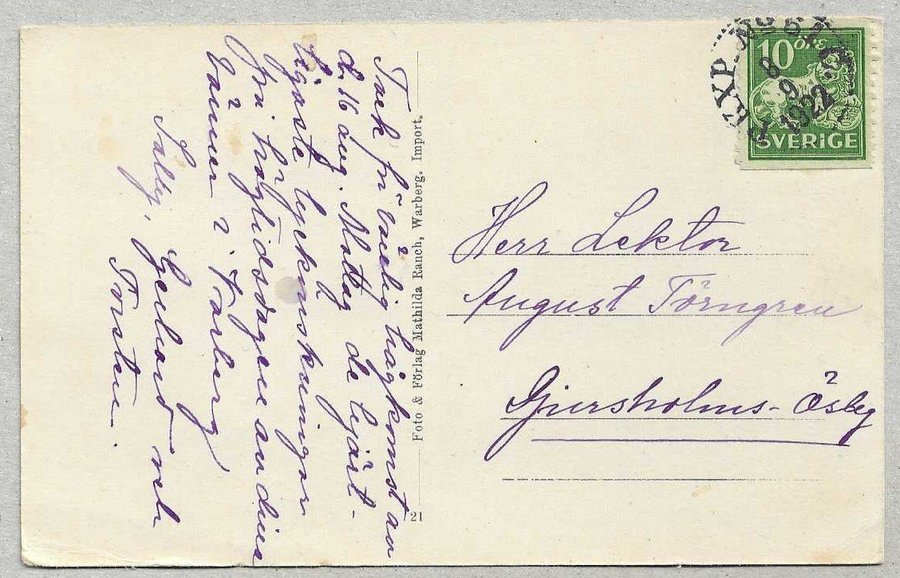 Tack för vänlig hågkomst av
d. 16 aug. Mottag de hjärt-
ligaste lyckönskningar
för högtidsdagen av dina
vänner i Varberg
Sally, Gerhard och
Torsten.
Foto & Förlag Mathilda Ranch, Warberg. Import.
21
PEXP. No
8 9
1922
10 ÖRE
SVERIGE
Herr Lektor
August Törngren
Djursholms-Ösby